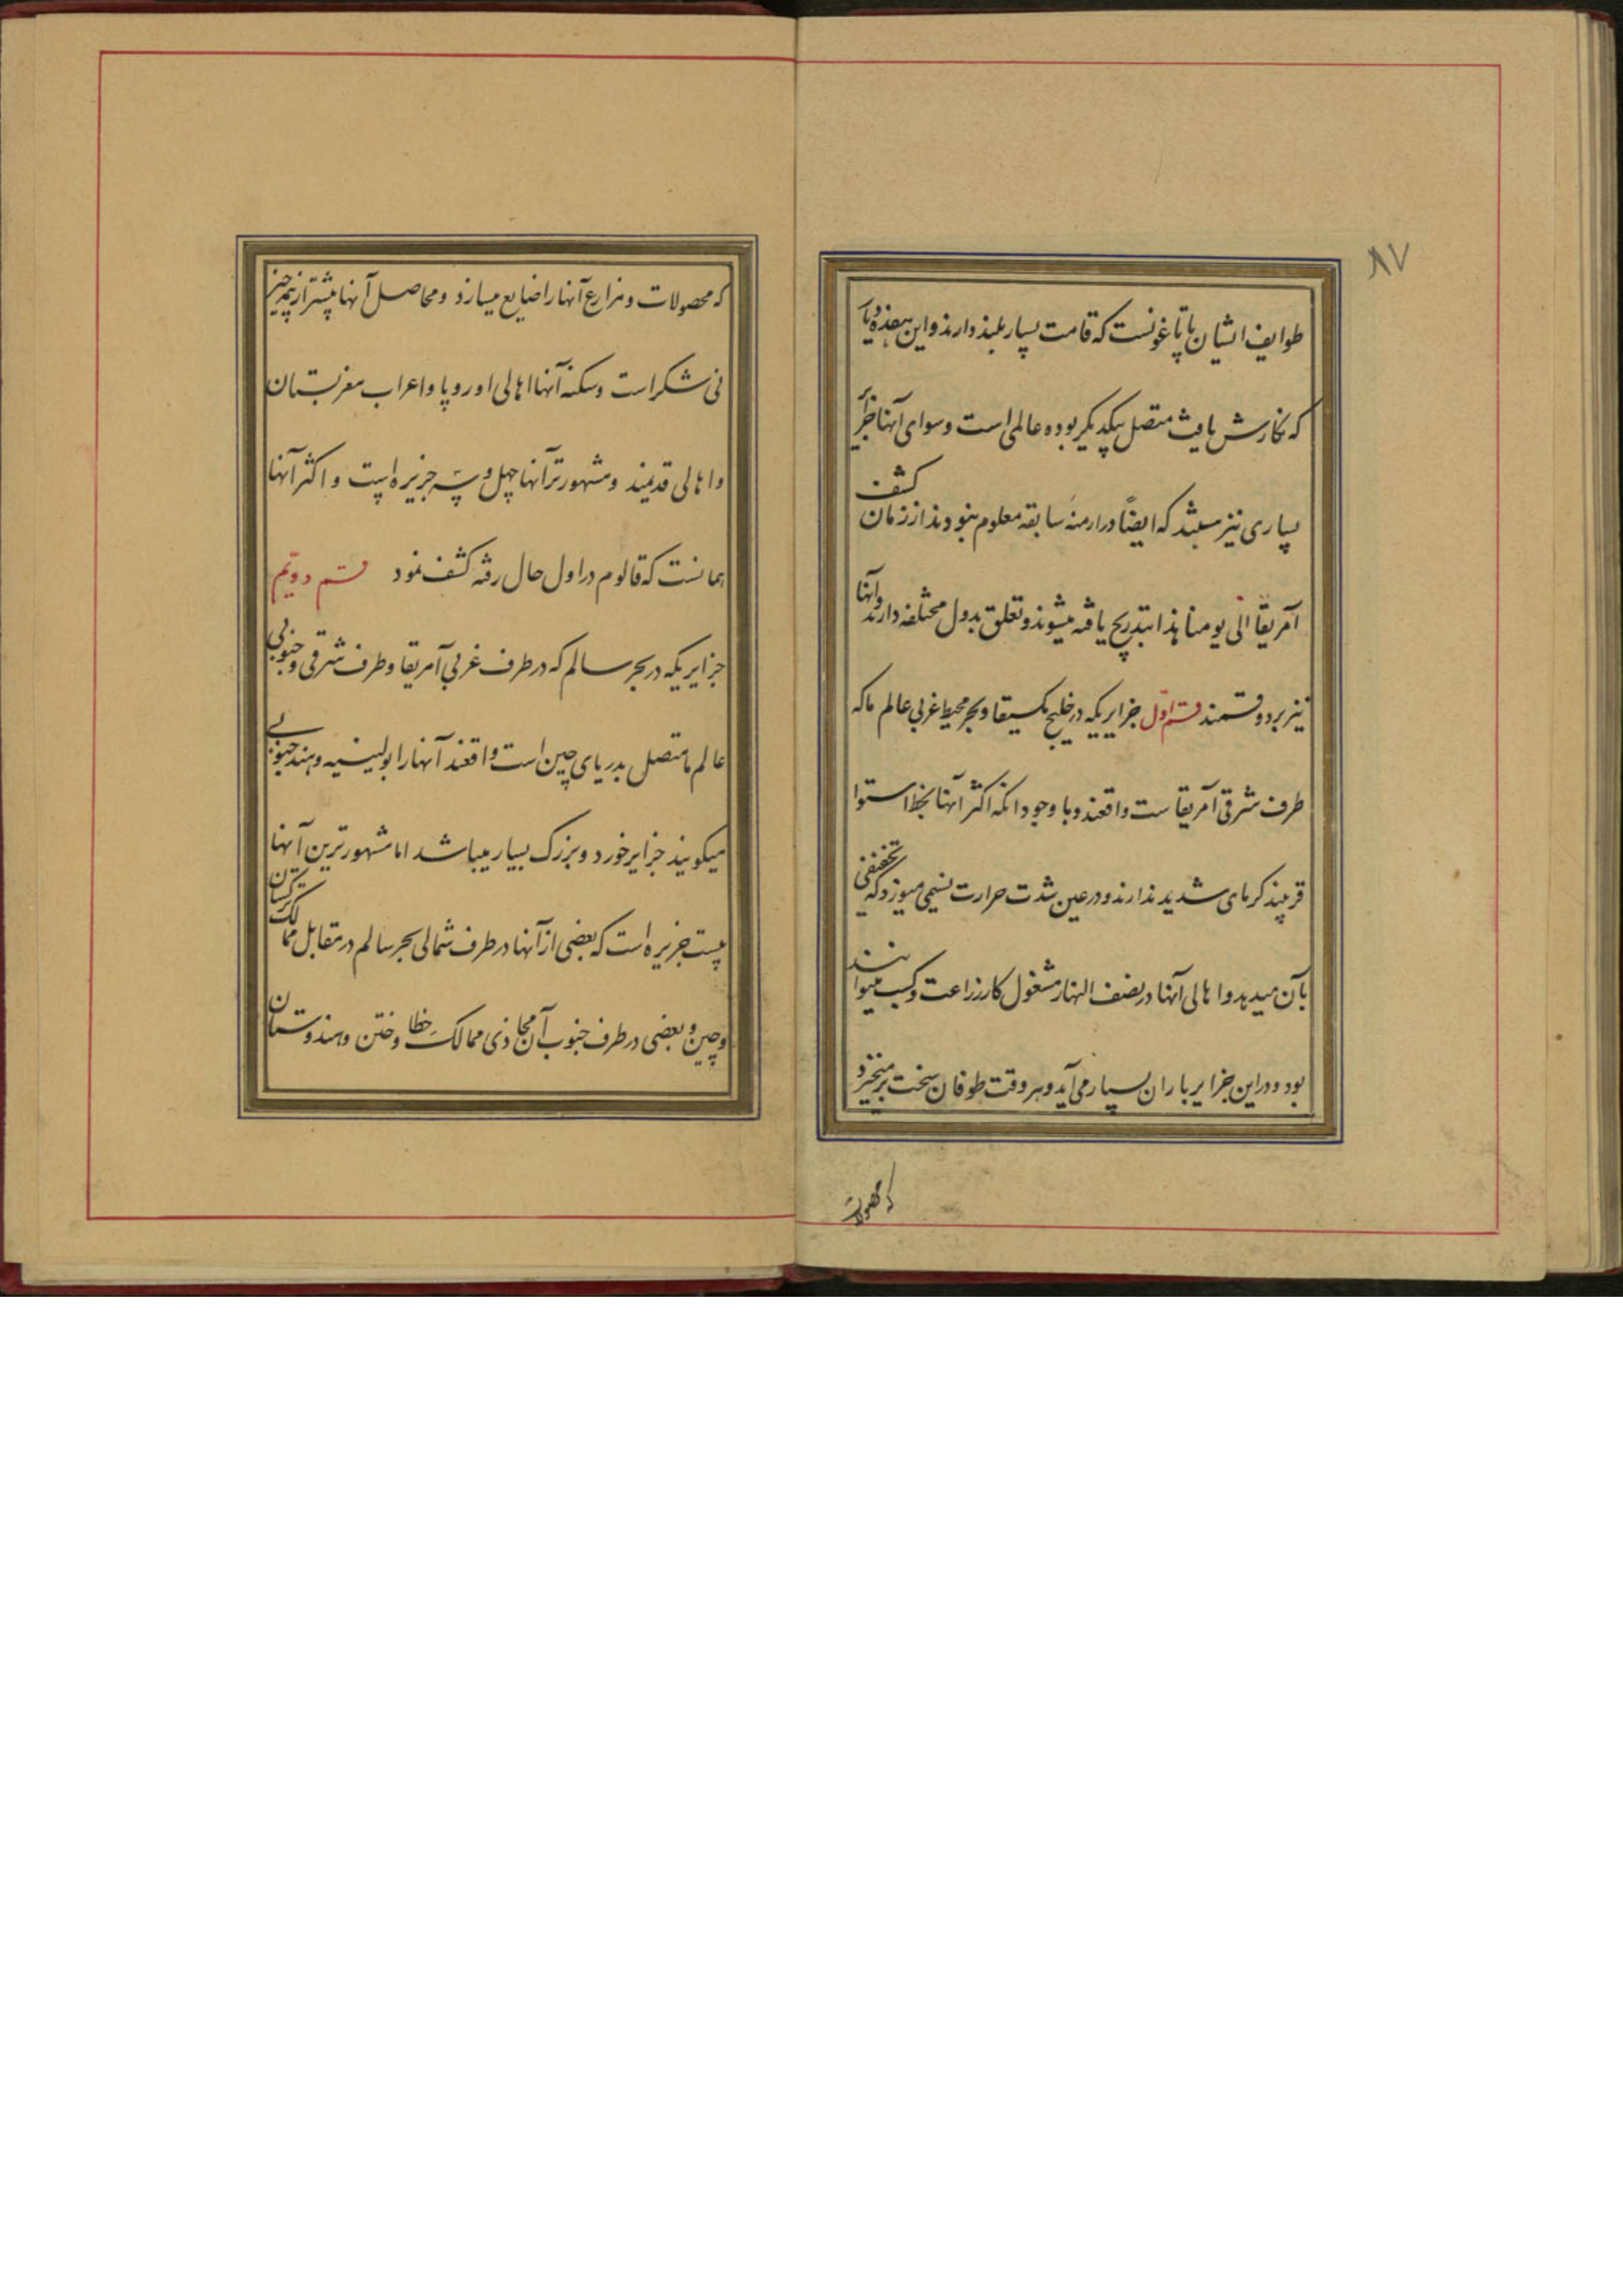 ۸۷
طوایف ایشان پاتاغونست که قامت بسیار بلند دارند و این هفده دیار
که نگارش یافت متصل بیکدیگر بوده عالمی است و سوای آنها جزایر
بسیاری نیز میباشد که ایضاً در ازمنه سابقه معلوم نبودند از زمان کشف
آمریقا الی یومنا هذا بتدریج یافته میشوند و تعلق بدول مختلفه دارند و آنها
نیز بر دو قسمند قسم اول جزایریکه در خلیج مکسیقا و بحر محیط غربی عالم ما که
طرف شرقی آمریقاست واقعند و با وجود انکه اکثر آنها بخط استوا
قریبند گرمای شدید ندارند و در عین شدت حرارت نسیمی میوزد که تخفیفی
بآن میدهد و اهالی آنها در نصف النهار مشغول کار زراعت و کسب میتوانند
بود و در این جزایر باران بسیار می آید و هر وقت طوفان سخت برمیخیزد
که محصولات
که محصولات و مزارع آنها را ضایع میسازد و محاصل آنها بیشتر از همه چیز
نی شکر است و سکنه آنها اهالی اوروپا و اعراب مغربستان
و اهالی قدیمند و مشهورتر آنها چهل و سه جزیره است و اکثر آنها
همانست که قالوم در اول حال رفته کشف نمود قسم دویم
جزایریکه در بحر سالم که در طرف غربی آمریقا و طرف شرقی و جنوبی
عالم ما متصل بدریای چین است واقعند آنها را بولینسیه و هند جنوبی
میکویند جزایر خورد و بزرک بسیار میباشد اما مشهورترین آنها
بیست جزیره است که بعضی از آنها در طرف شمالی بحر سالم در مقابل ممالک ترکستان
و چین و بعضی در طرف جنوب آن محاذی ممالک خطا و ختن و هندوستان